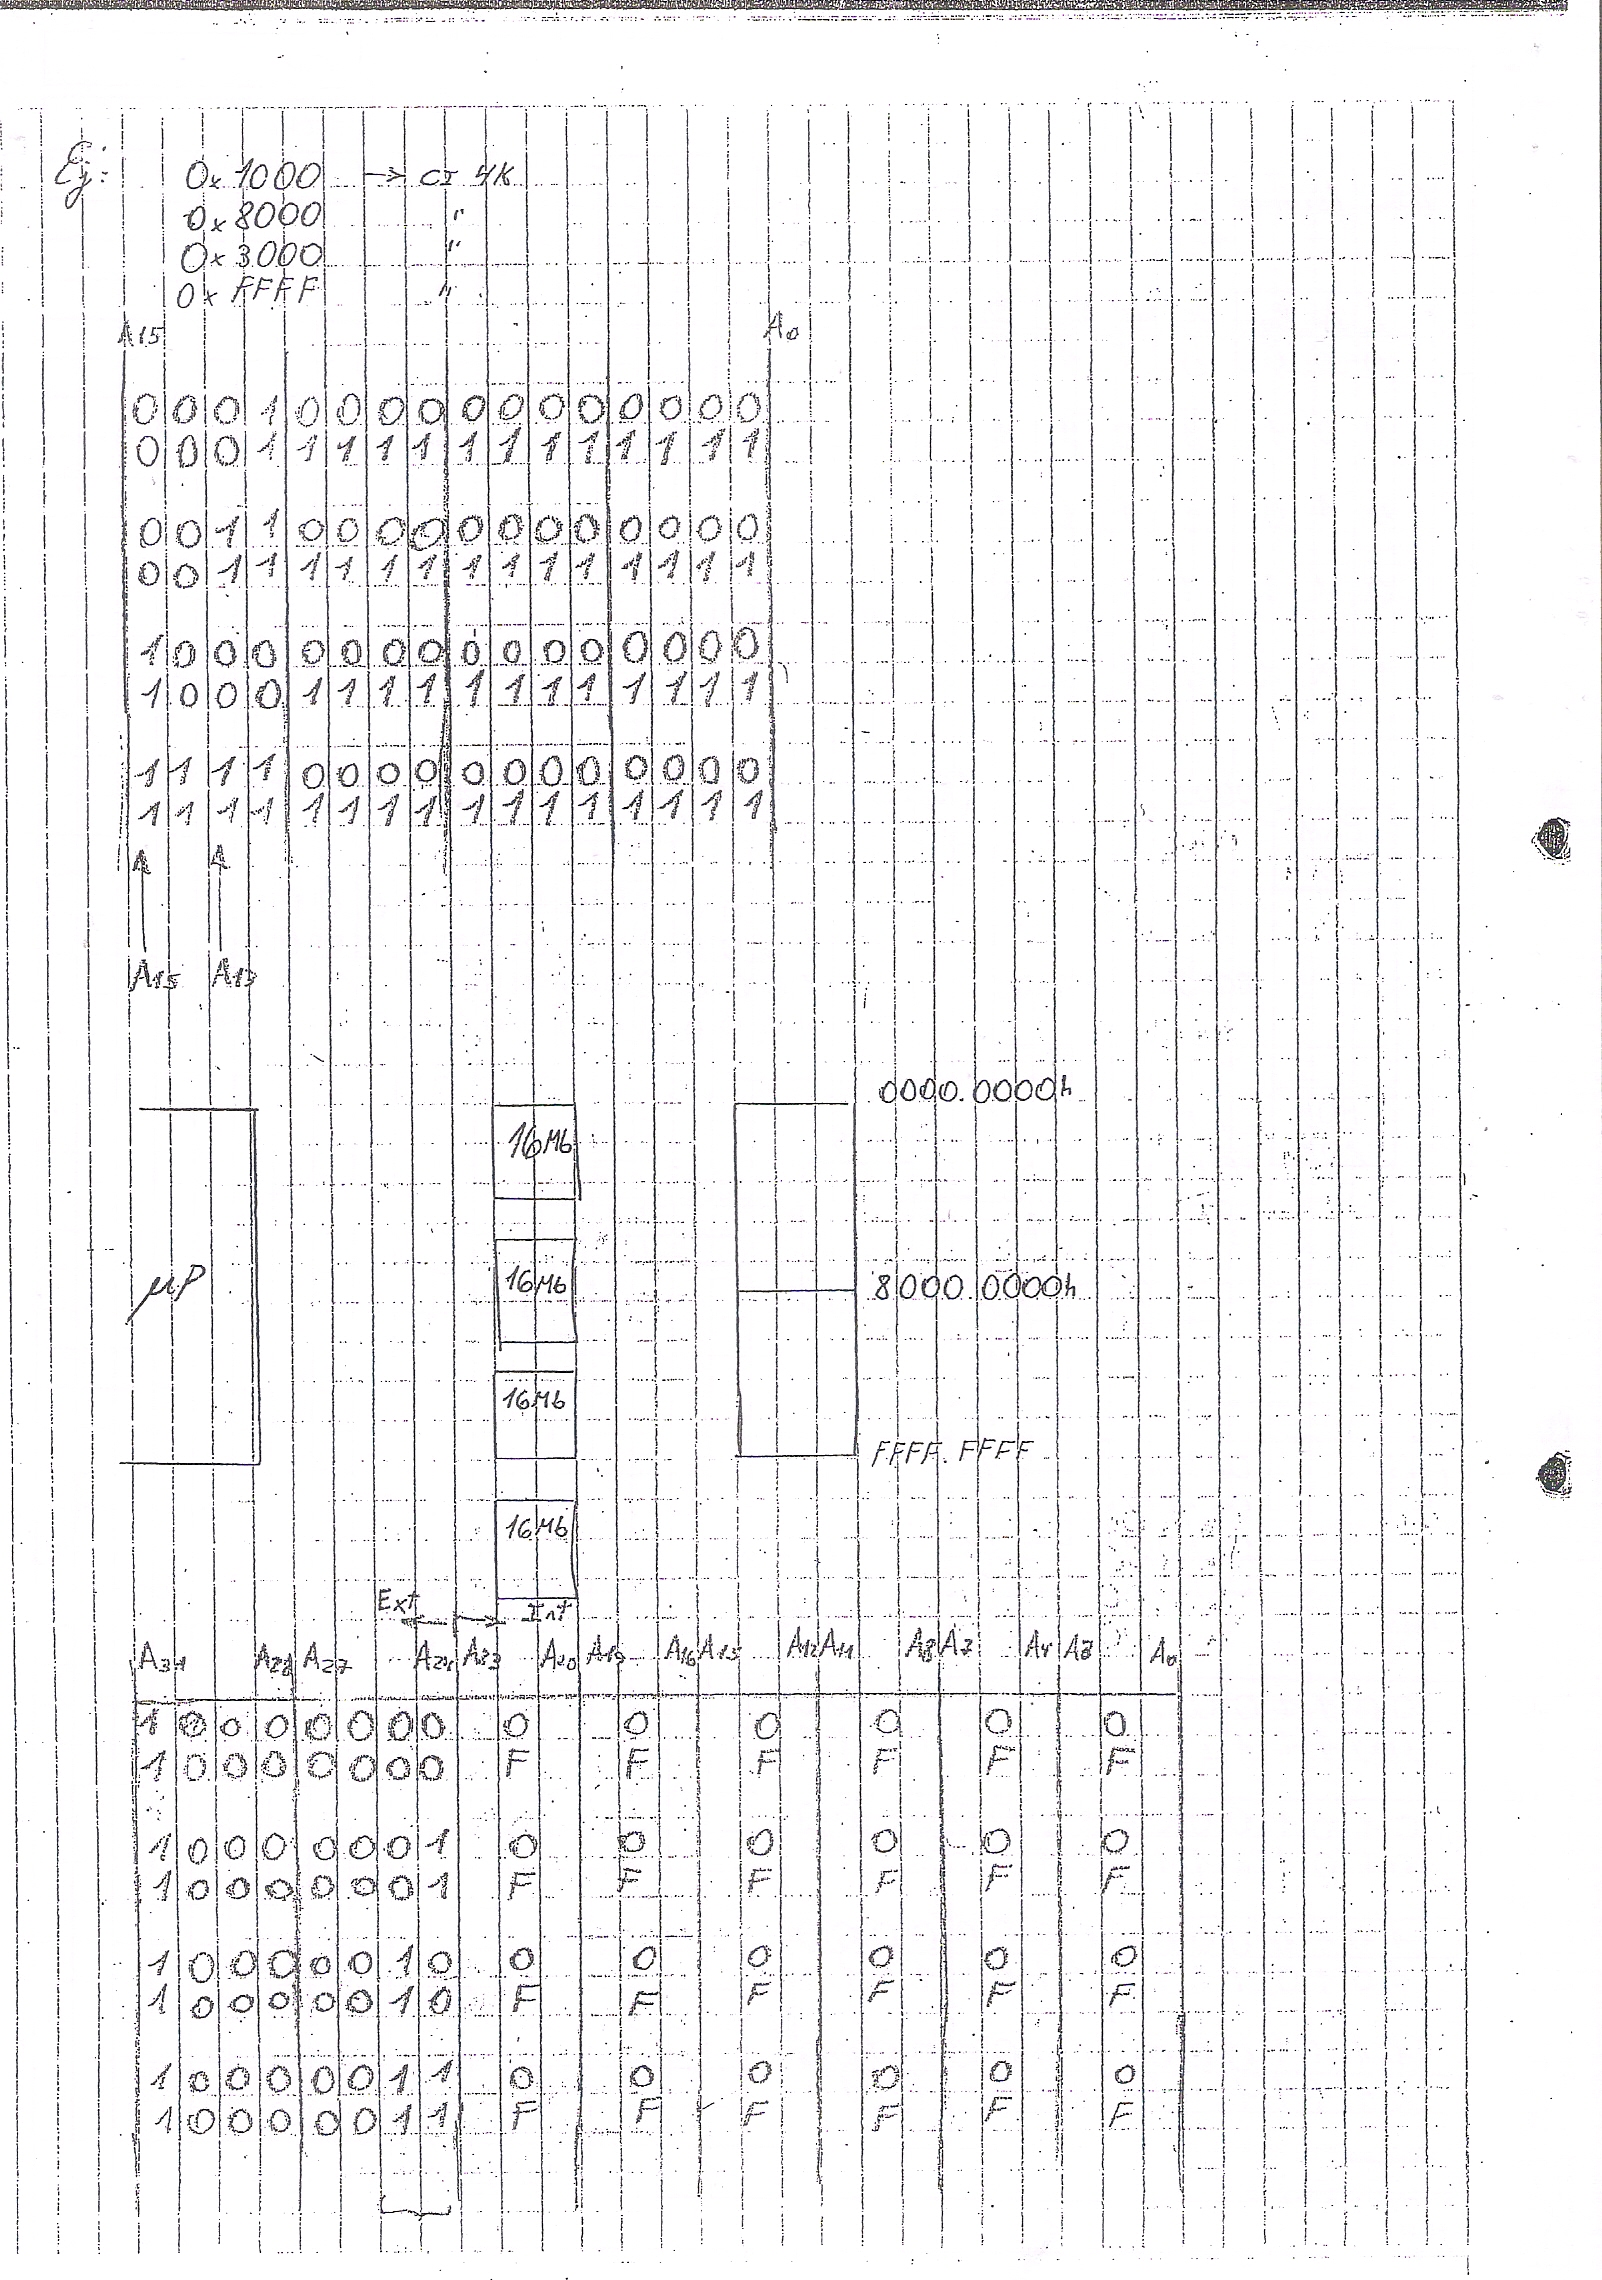 Ej: 0x1000 → CI 4K
0x8000 "
0x3000 "
0xFFFF "
A15 A0
0 0 0 1 0 0 0 0 0 0 0 0 0 0 0 0
0 0 0 1 1 1 1 1 1 1 1 1 1 1 1 1
0 0 1 1 0 0 0 0 0 0 0 0 0 0 0 0
0 0 1 1 1 1 1 1 1 1 1 1 1 1 1 1
1 0 0 0 0 0 0 0 0 0 0 0 0 0 0 0
1 0 0 0 1 1 1 1 1 1 1 1 1 1 1 1
1 1 1 1 0 0 0 0 0 0 0 0 0 0 0 0
1 1 1 1 1 1 1 1 1 1 1 1 1 1 1 1
A15 A13
0000.0000h
16Mb
µP
16Mb
8000.0000h
16Mb
FFFF.FFFF
16Mb
Ext Int
A31 A28 A27 A24 A23 A20 A19 A16 A15 A12 A11 A8 A7 A4 A3 A0
1 0 0 0 0 0 0 0 0 0 0 0 0 0
1 0 0 0 0 0 0 0 F F F F F F
1 0 0 0 0 0 0 1 0 0 0 0 0 0
1 0 0 0 0 0 0 1 F F F F F F
1 0 0 0 0 0 1 0 0 0 0 0 0 0
1 0 0 0 0 0 1 0 F F F F F F
1 0 0 0 0 0 1 1 0 0 0 0 0 0
1 0 0 0 0 0 1 1 F F F F F F